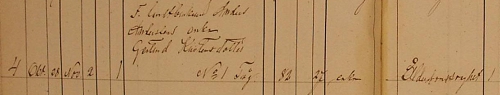 F. Lindbäckern Anders
Anderssons enka
Gertrud Kristensdotter
4 Oct. 28 Nov. 2 1 No 1 Tåg 83 27 enka Ålderdomssvaghet 1